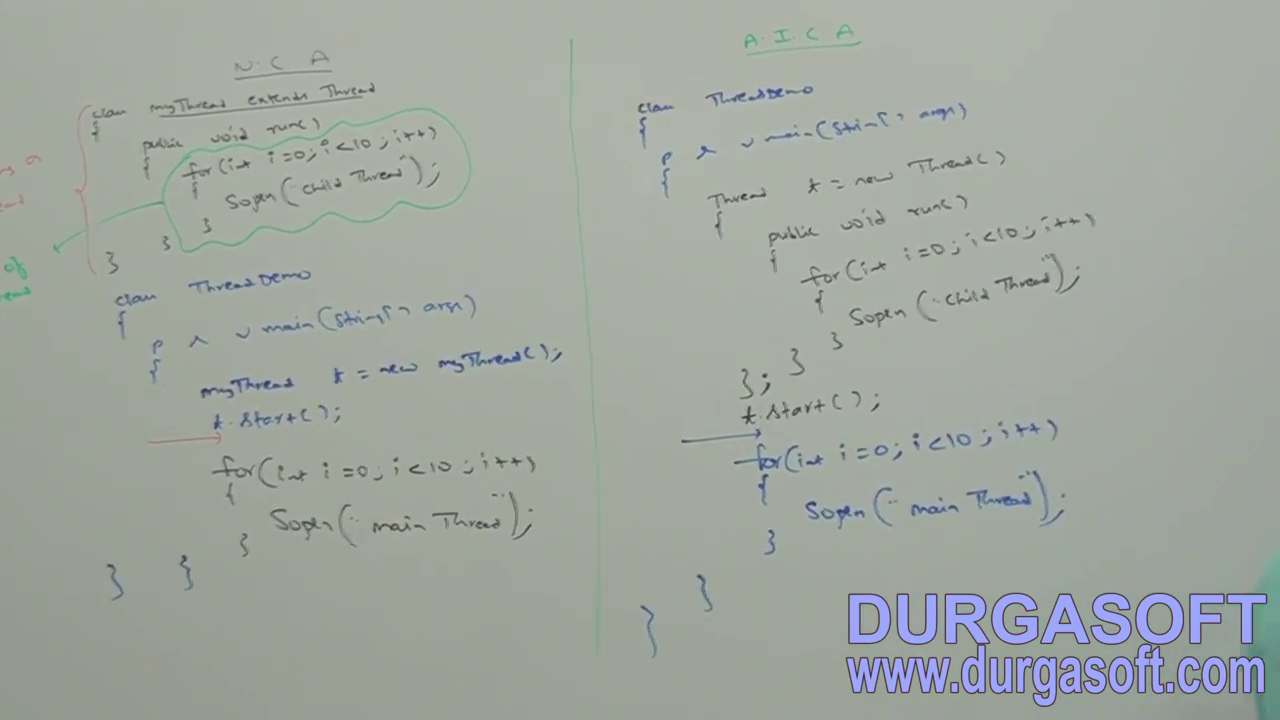 N.C A
class myThread extends Thread
{
public void run()
{
for(int i=0; i<10; i++)
{
Sopln("child Thread");
}
}
}
of
class ThreadDemo
{
p s v main(String[] args)
{
myThread t = new myThread();
t.start();
for(int i=0; i<10; i++)
{
Sopln("main Thread");
}
}
}
A.I.C A
class ThreadDemo
{
p s v main(String[] args)
{
Thread t = new Thread()
{
public void run()
{
for(int i=0; i<10; i++)
{
Sopln("child Thread");
}
}
};
t.start();
for(int i=0; i<10; i++)
{
Sopln("main Thread");
}
}
}
DURGASOFT
www.durgasoft.com